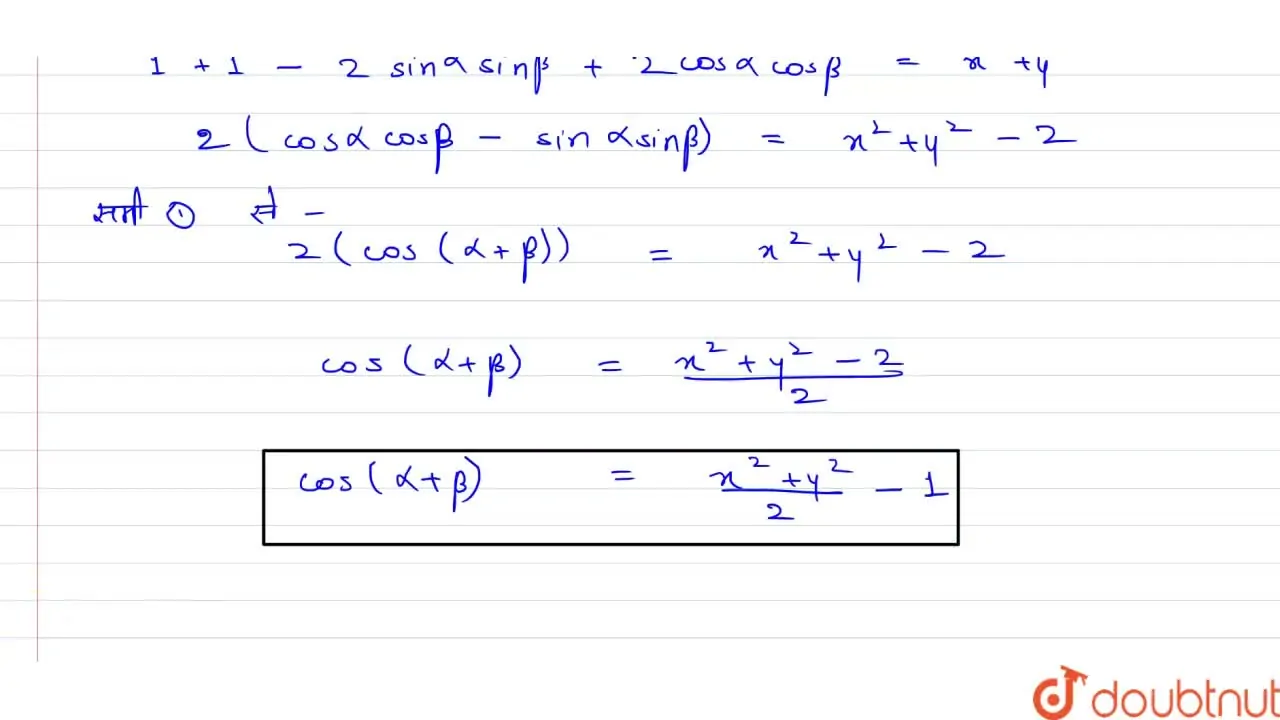 1 + 1 - 2 sinα sinβ + 2 cosα cosβ = x + y
2 ( cosα cosβ - sin α sinβ) = x² + y² - 2
समी ① से -
2 ( cos (α + β)) = x² + y² - 2
cos (α + β) = x² + y² - 2
2
cos (α + β) = x² + y² - 1
2
doubtnut